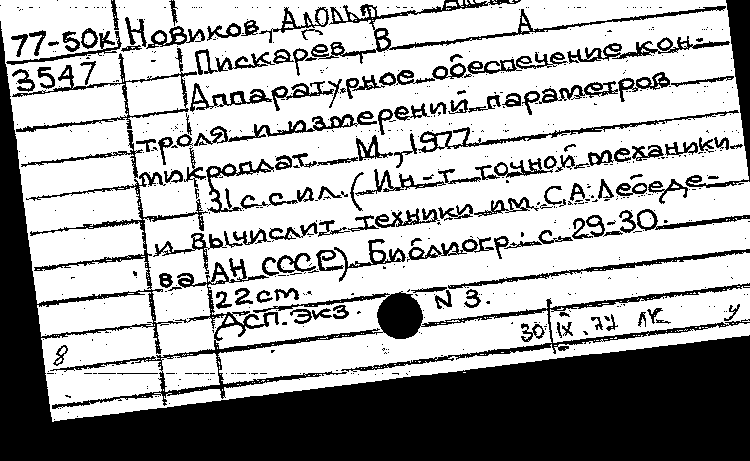 77-50к Новиков, Адольф
3547 Пискарев, В А
Аппаратурное обеспечение кон-
троля и измерений параметров
микроплат. М., 1977.
31 с. с ил. (Ин-т точной механики
и вычислит. техники им. С.А. Лебеде-
ва АН СССР). Библиогр.: с. 29-30.
22 см.
Дсп. Экз. N 3.
30 IX. 77 ЛК У
8